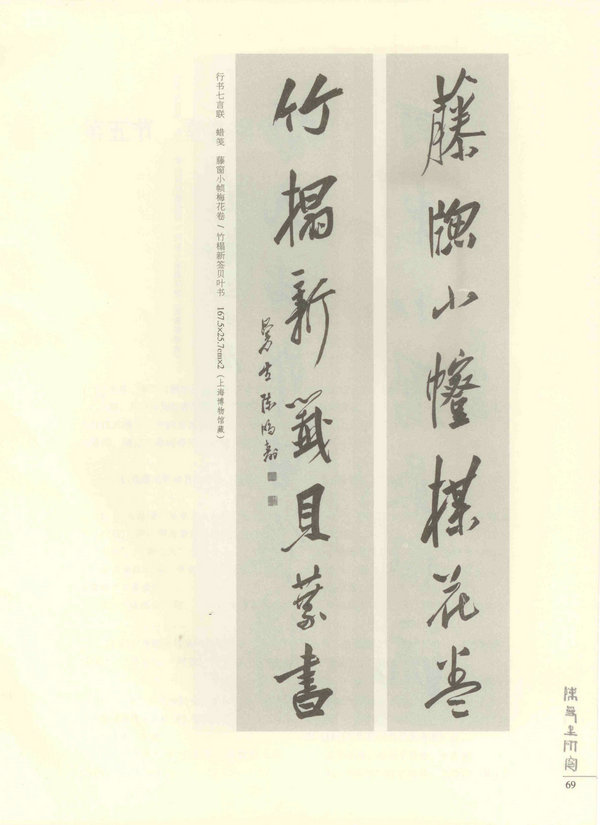 藤牕小楳花卷
竹榻新籤貝葉書
曼生陳鴻壽
行书七言联 蜡笺 藤窗小帧梅花卷 / 竹榻新签贝叶书 167.5×25.7cm×2（上海博物馆藏）
陳曼生研究
69